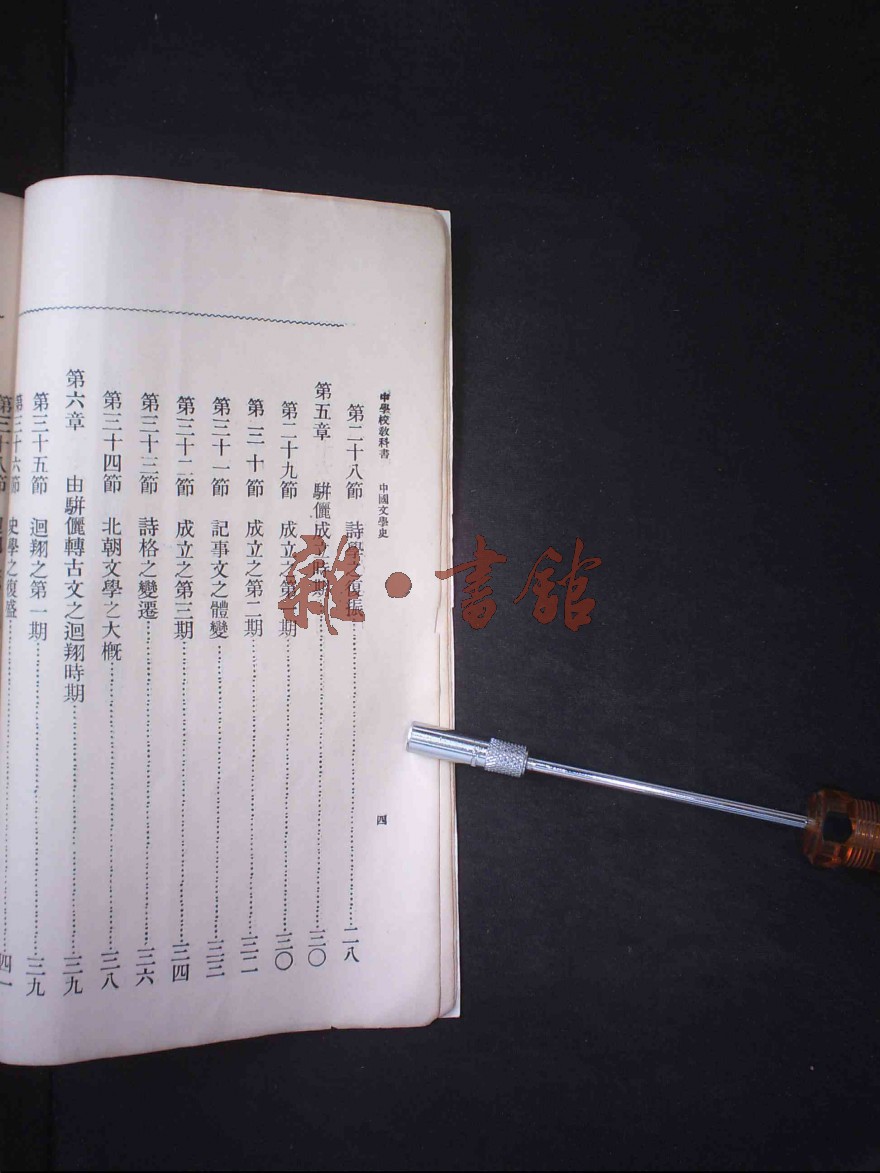 中學校教科書 中國文學史 四
第二十八節 詩學之復振 二八
第五章 駢儷成立時期 三〇
第二十九節 成立之第一期 三〇
第三十節 成立之第二期 三二
第三十一節 記事文之體變 三三
第三十二節 成立之第三期 三四
第三十三節 詩格之變遷 三六
第三十四節 北朝文學之大概 三八
第六章 由駢儷轉古文之迴翔時期 三九
第三十五節 迴翔之第一期 三九
第三十六節 史學之復盛 四一
第三十八節
雜·書館